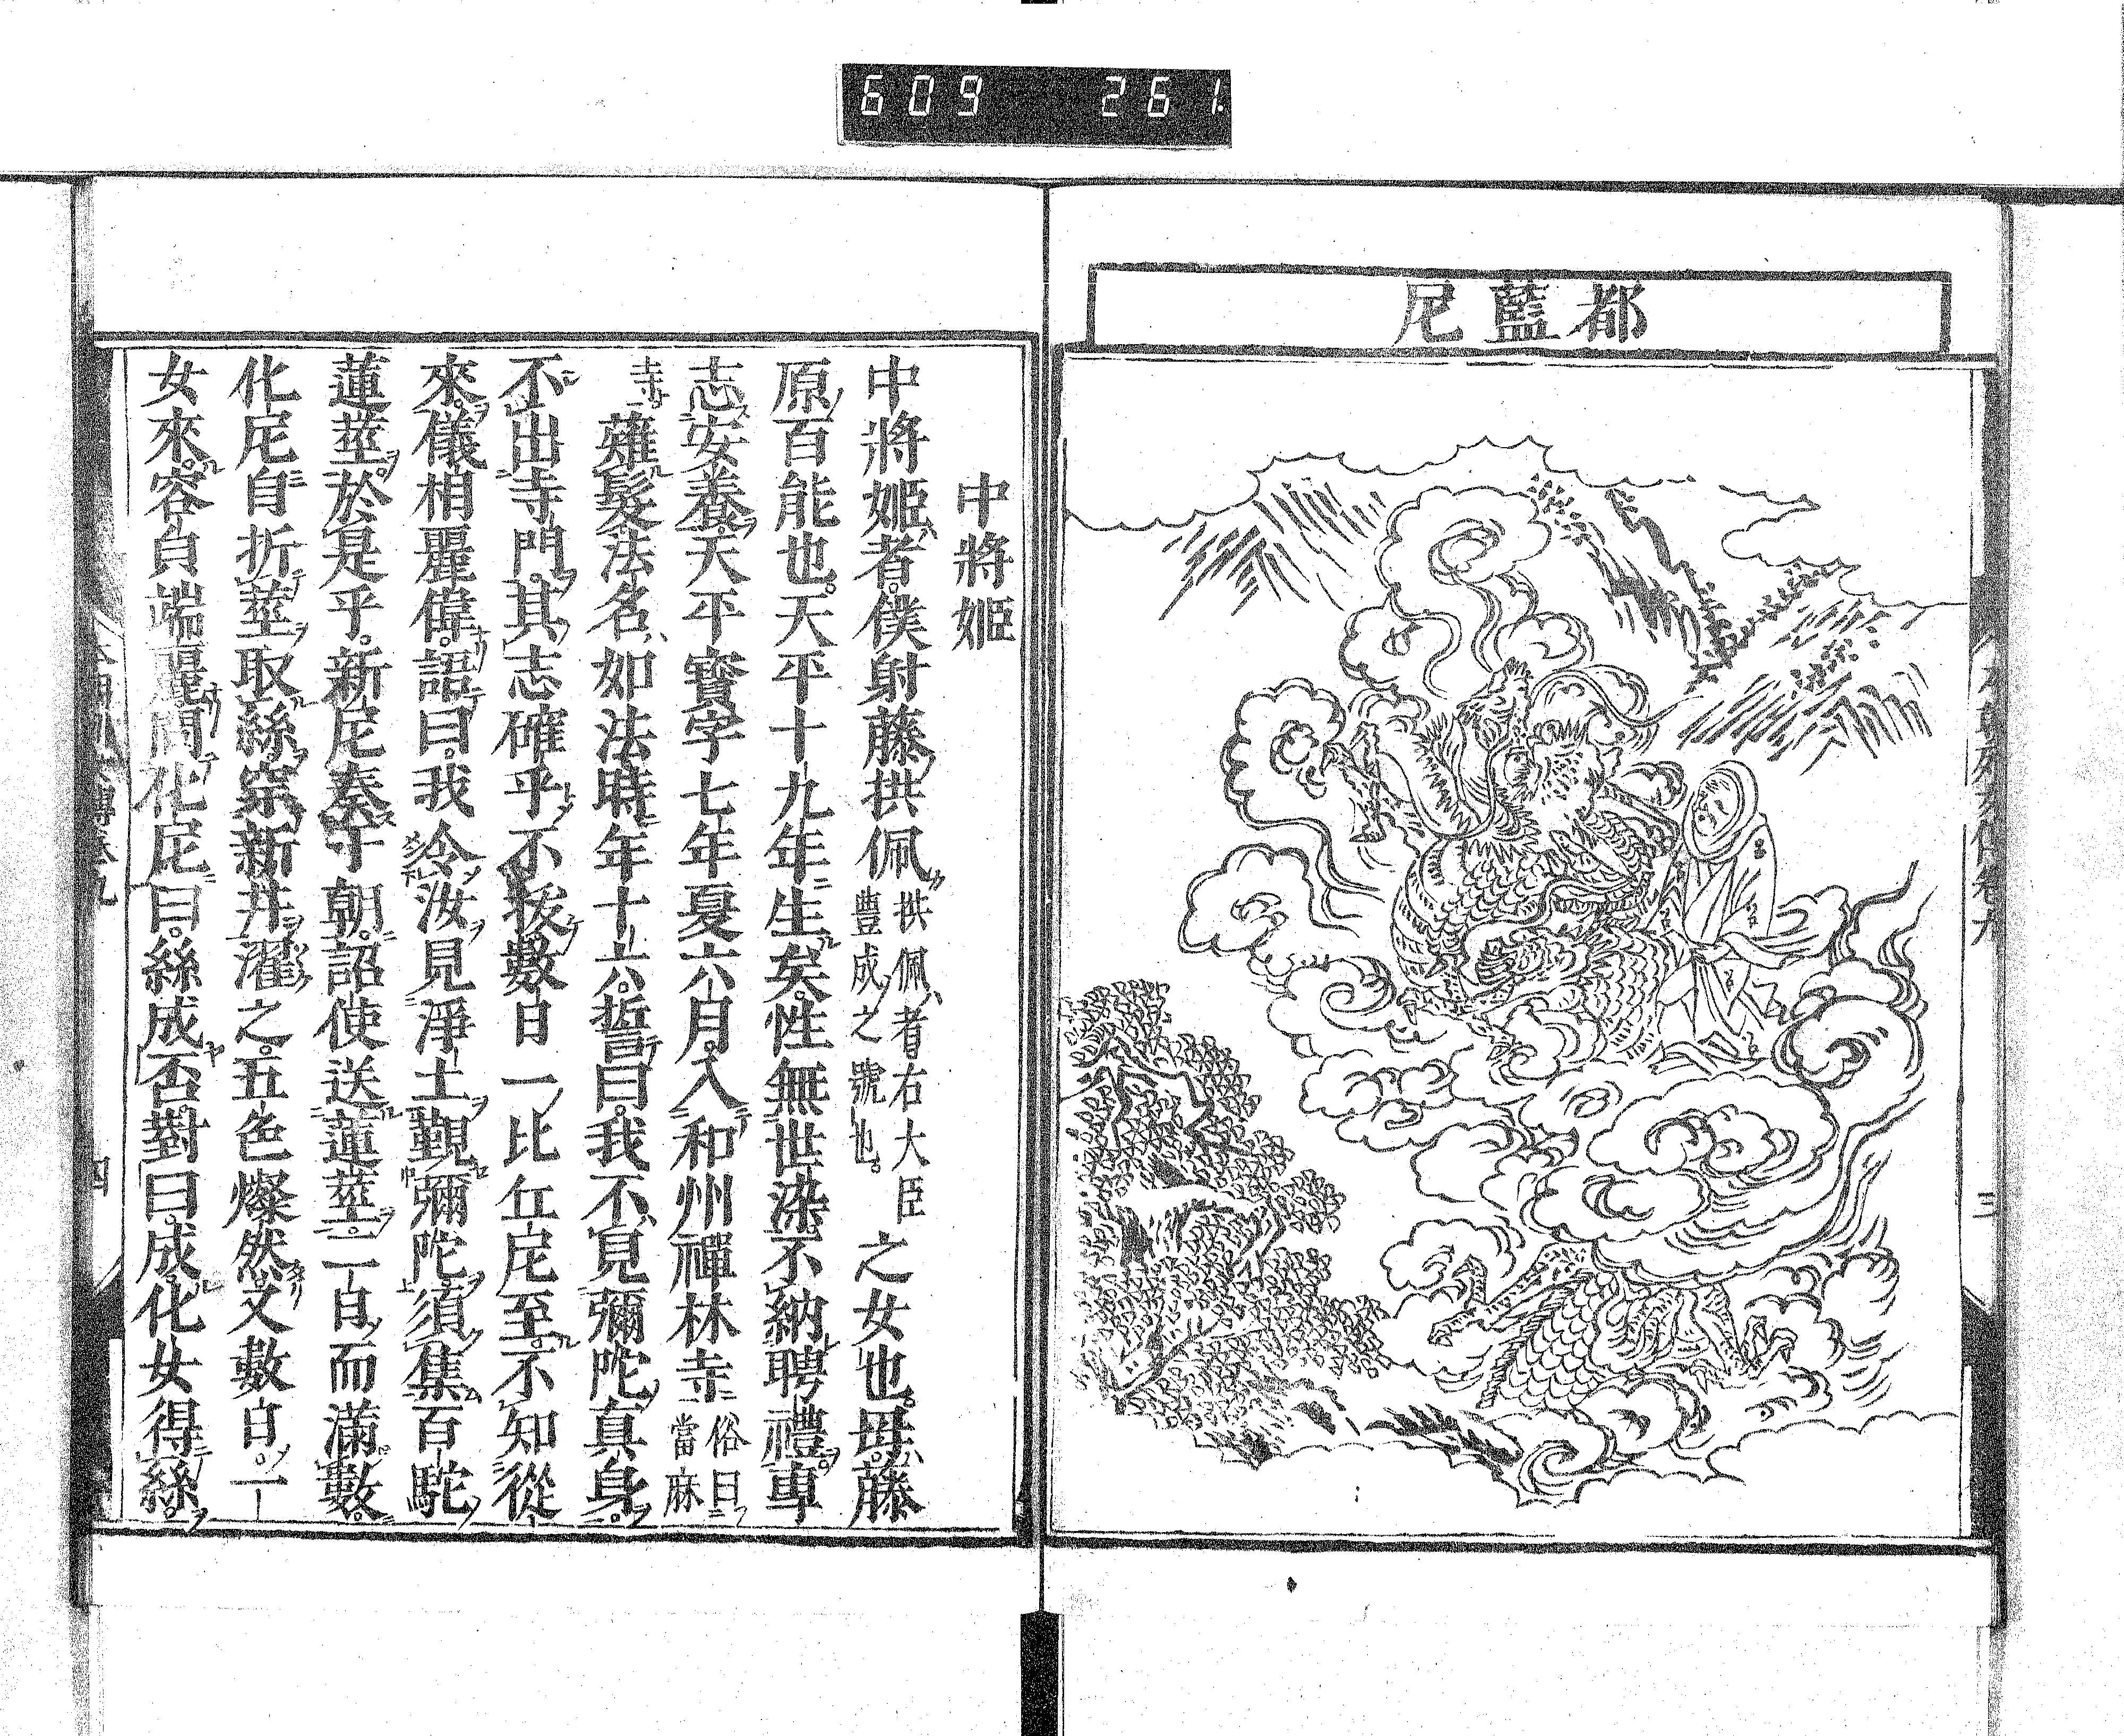 609 261
都藍尼
中將姬
中將姬者。僕射藤拱佩拱佩者右大臣豊成之號也。之女也。毋藤
原百能也。天平十九年生矣。性無世染。不納聘禮。專
志安養。天平寶字七年夏六月。入和州禪林寺俗曰當麻
寺薙髮。法名如法。時年十六。誓曰。我不見彌陀真身。
不出寺門。其志確乎不拔。數日一比丘尼至。不知從
來。儀相麗偉。語曰。我令汝見淨土觀彌陀。須集百駝
蓮莖。於是乎。新尼奏于朝。詔使送蓮莖。一百而滿數。
化尼自折莖取絲。穿新井濯之。五色燦然。又數日。一
女來。容自端麗。問化尼曰。絲成否。對曰。成。化女得絲。
四
三